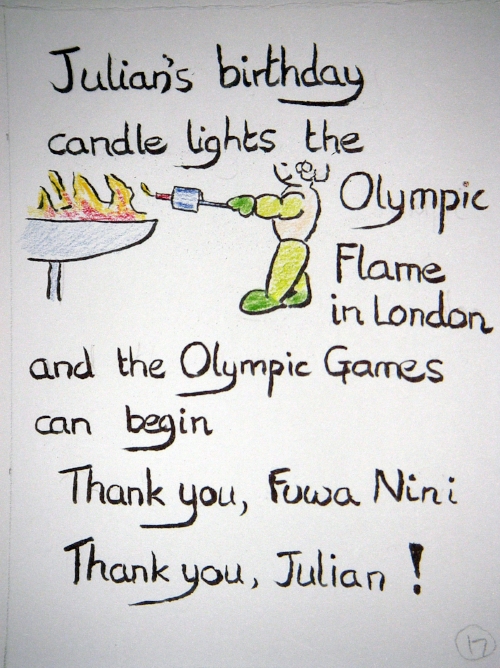 Julian's birthday
candle lights the
Olympic
Flame
in London
and the Olympic Games
can begin
Thank you, Fuwa Nini
Thank you, Julian !
17